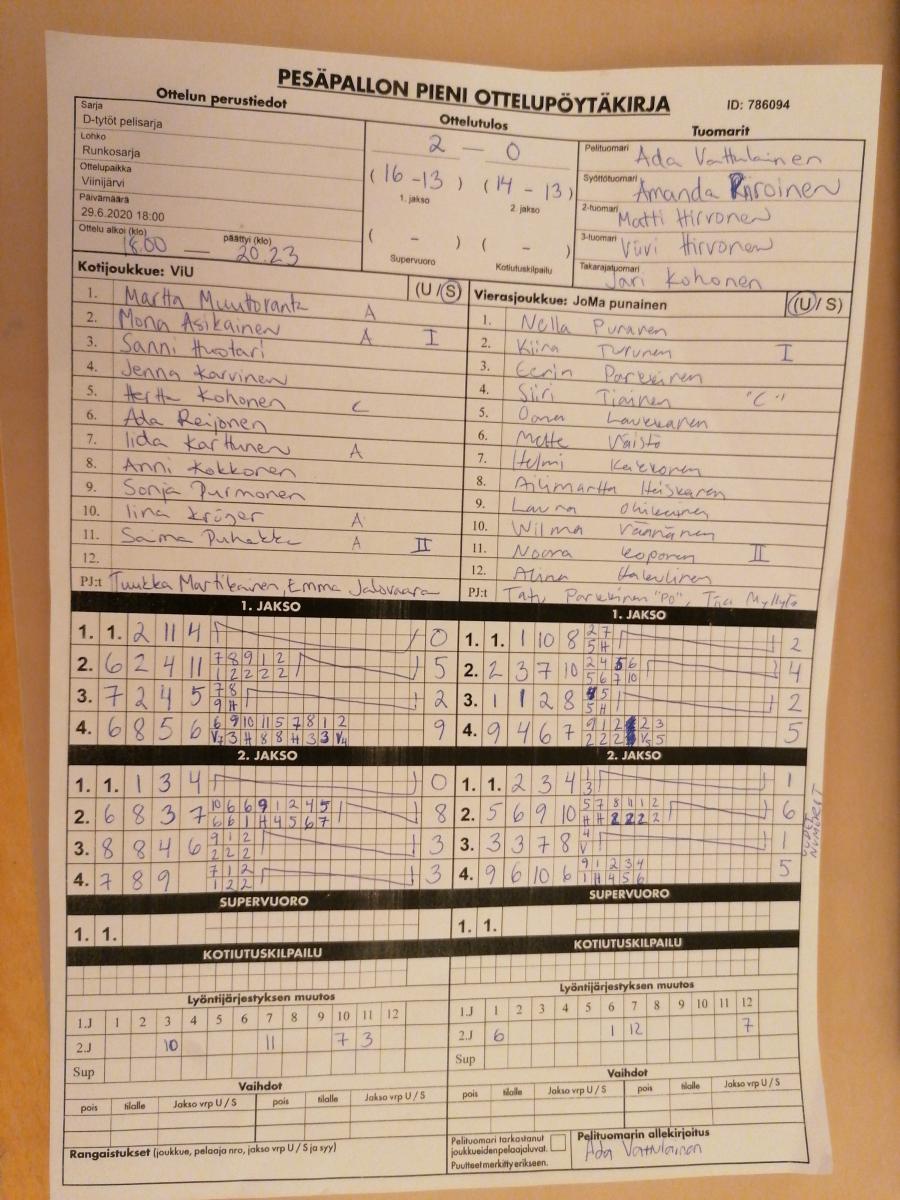 PESÄPALLON PIENI OTTELUPÖYTÄKIRJA
ID: 786094
Ottelun perustiedot
Sarja
D-tytöt pelisarja
Lohko
Runkosarja
Ottelupaikka
Viinijärvi
Päivämäärä
29.6.2020 18:00
Ottelu alkoi (klo) 18.00 päättyi (klo) 20.23
Ottelutulos
2 — 0
(16 - 13) (14 - 13)
1. jakso 2. jakso
( - ) ( - )
Supervuoro Kotiutuskilpailu
Tuomarit
Pelituomari Ada Vattulainen
Syöttötuomari Amanda Piiroinen
2-tuomari Matti Hirvonen
3-tuomari Viivi Hirvonen
Takarajatuomari Jari Kohonen
Kotijoukkue: ViU (U / S)
1. Martta Muuttoranta A
2. Mona Asikainen A I
3. Sanni Huotari
4. Jenna Karvinen
5. Hertta Kohonen C
6. Ada Reijonen
7. Iida Karttunen A
8. Anni Kokkonen
9. Sonja Purmonen
10. Iina Kröger A
11. Saima Puhakka A II
12.
PJ:t Tuukka Martikainen, Emma Jalovaara
Vierasjoukkue: JoMa punainen (U / S)
1. Nella Puranen
2. Kiira Turunen I
3. Eerin Parkkinen
4. Siiri Tiainen "C"
5. Oona Laukkanen
6. Mette Väistö
7. Helmi Kakkonen
8. Ailimartta Heiskanen
9. Laura
10. Wilma Väänänen
11. Noora Koponen II
12. Alina
PJ:t Tatu Parkkinen "PO", Tiia Myllytö
1. JAKSO
1. 1. 2 11 4 0
2. 6 2 4 11 7 8 9 1 2 5
1 2 2 2 2
3. 7 2 4 5 7 8 2
9 H
4. 6 8 5 6 6 9 10 11 5 7 8 1 2 9
V7 3 H 8 8 H 3 3 V4
1. JAKSO
1. 1. 1 10 8 2 7 2
5 H
2. 2 3 7 10 2 4 5 6 4
5 6 7 10
3. 1 1 2 8 4 5 2
5 H
4. 9 4 6 7 9 1 2 2 3 5
2 2 2 V5 5
2. JAKSO
1. 1. 1 3 4 0
2. 6 8 3 7 10 6 6 9 1 2 4 5 8
6 6 1 H 4 5 6 7
3. 8 8 4 6 9 1 2 3
2 2 2
4. 7 8 9 7 1 2 3
1 2 2
2. JAKSO
1. 1. 2 3 4 1 1
3
2. 5 6 9 10 5 7 8 11 1 2 6
H H 2 2 2 2
3. 3 3 7 8 4 1
V
4. 9 6 10 6 9 1 2 3 4 5
1 H 4 5 6
UUDET NUMEROT
SUPERVUORO
1. 1.
SUPERVUORO
1. 1.
KOTIUTUSKILPAILU
KOTIUTUSKILPAILU
Lyöntijärjestyksen muutos
1.J 1 2 3 4 5 6 7 8 9 10 11 12
2.J 10 11 7 3
Sup
Lyöntijärjestyksen muutos
1.J 1 2 3 4 5 6 7 8 9 10 11 12
2.J 6 1 12 7
Sup
Vaihdot
pois tilalle Jakso vrp U / S pois tilalle Jakso vrp U / S
Vaihdot
pois tilalle Jakso vrp U / S pois tilalle Jakso vrp U / S
Rangaistukset (joukkue, pelaaja nro, jakso vrp U / S ja syy)
Pelituomari tarkastanut
joukkueiden pelaajaluvat.
Puutteet merkitty erikseen.
Pelituomarin allekirjoitus
Ada Vattulainen